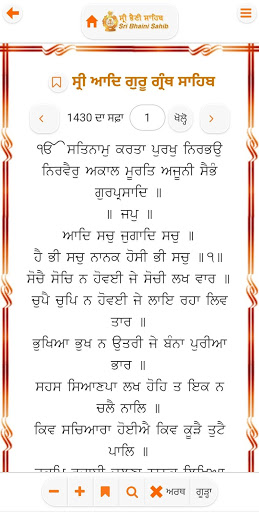 ਸ੍ਰੀ ਭੈਣੀ ਸਾਹਿਬ
Sri Bhaini Sahib
ਸ੍ਰੀ ਆਦਿ ਗੁਰੂ ਗ੍ਰੰਥ ਸਾਹਿਬ
1430 ਦਾ ਸਫ਼ਾ 1 ਖੋਲ੍ਹੋ
ੴ ਸਤਿਨਾਮੁ ਕਰਤਾ ਪੁਰਖੁ ਨਿਰਭਉ
ਨਿਰਵੈਰੁ ਅਕਾਲ ਮੂਰਤਿ ਅਜੂਨੀ ਸੈਭੰ
ਗੁਰਪ੍ਰਸਾਦਿ ॥
॥ ਜਪੁ ॥
ਆਦਿ ਸਚੁ ਜੁਗਾਦਿ ਸਚੁ ॥
ਹੈ ਭੀ ਸਚੁ ਨਾਨਕ ਹੋਸੀ ਭੀ ਸਚੁ ॥੧॥
ਸੋਚੈ ਸੋਚਿ ਨ ਹੋਵਈ ਜੇ ਸੋਚੀ ਲਖ ਵਾਰ ॥
ਚੁਪੈ ਚੁਪਿ ਨ ਹੋਵਈ ਜੇ ਲਾਇ ਰਹਾ ਲਿਵ
ਤਾਰ ॥
ਭੁਖਿਆ ਭੁਖ ਨ ਉਤਰੀ ਜੇ ਬੰਨਾ ਪੁਰੀਆ
ਭਾਰ ॥
ਸਹਸ ਸਿਆਣਪਾ ਲਖ ਹੋਹਿ ਤ ਇਕ ਨ
ਚਲੈ ਨਾਲਿ ॥
ਕਿਵ ਸਚਿਆਰਾ ਹੋਈਐ ਕਿਵ ਕੂੜੈ ਤੁਟੈ
ਪਾਲਿ ॥
ਅਰਥ ਗੂੜ੍ਹਾ